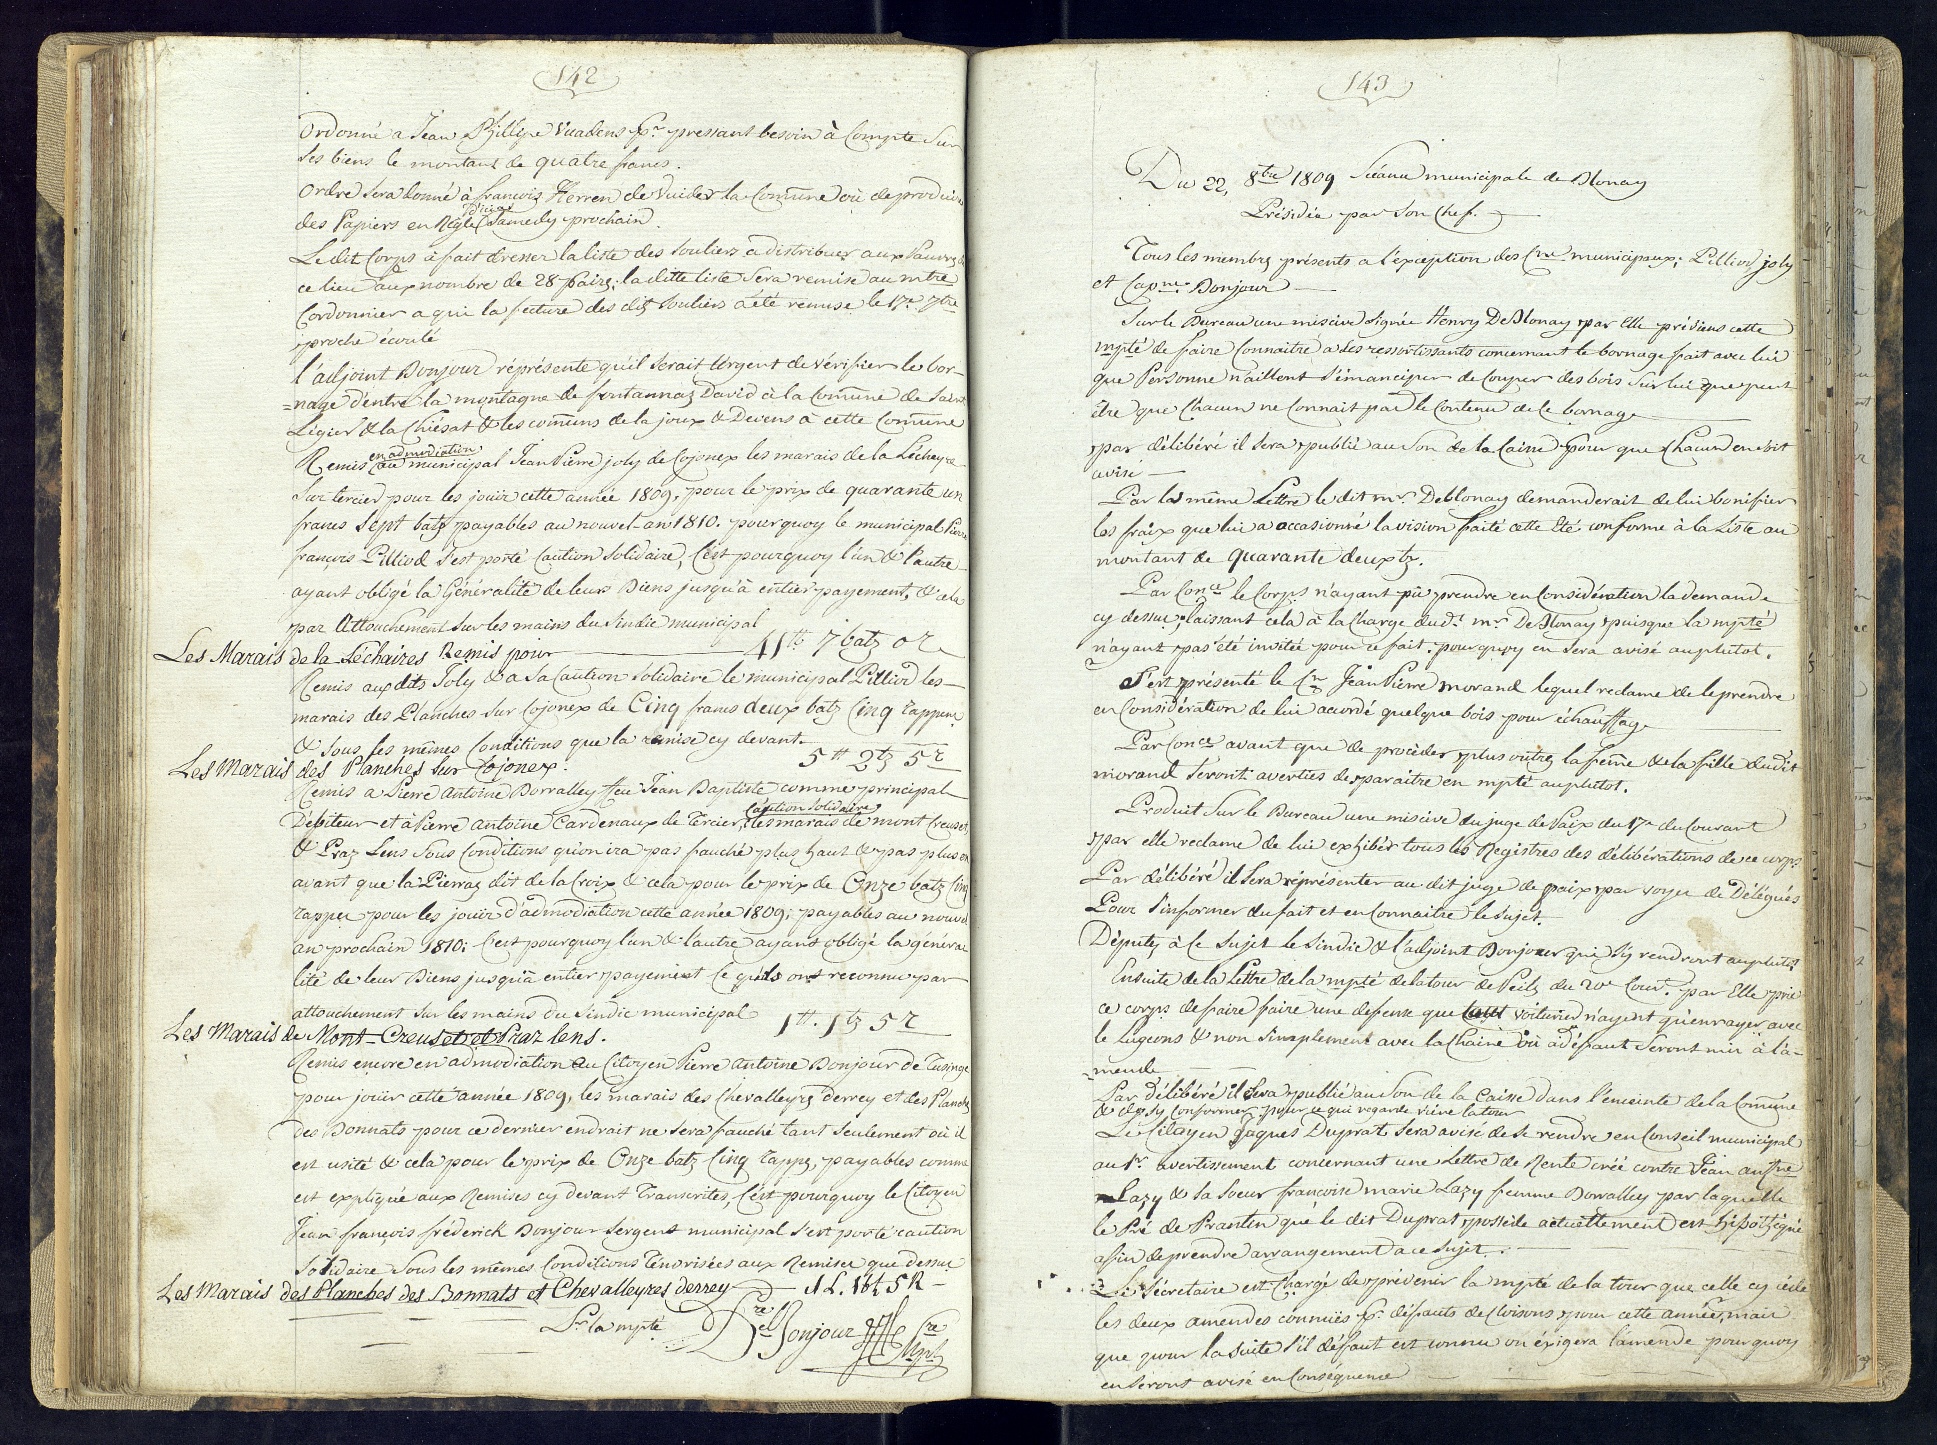 142
Ordonné a Jean Phillipe Vuadens pr. pressant besoin à Compte Sur
Ses biens le montant de quatre francs.
Ordre Sera donné à françois Herren de Vuider la Comune où de produire
des Papiers en Règle d'icy a Samedy prochain.
Le dit Corps à fait dresser la liste des Souliers a distribuer aux Pauvres de
ce lieu aux nombre de 28 paires, la ditte liste Sera remise au mtre
Cordonnier a qui la facture des dits Souliers a été remise le 17e 7bre
proche écoulé
l'adjoint Bonjour réprésente qu'il Serait Urgent de Vérifier le bor-
=nage d'entre la montagne de fontannaz David à la Comune de Saint
Légier & la Chiésaz & les comuns de la joux & Devens à cette Comune
Remis en admodiation au municipal Jean Pierre joly de Cojonex les marais de la Lécheyre
Sur tercier pour les jouir cette année 1809, pour le prix de quarante un
francs Sept batz payables au nouvel an 1810. pourquoy le municipal Pierre
françois Pilliod S'est porté Caution Solidaire, C'est pourquoy l'un & l'autre
ayant obligé la Généralité de leurs Biens jusqu'à entier payement, & cela
par Attouchement Sur les mains du Sindic municipal
Les Marais de la Léchaires Remis pour 41 ₶ 7 batz 0 r
Remis aux dits Joly & a Sa Caution Solidaire le municipal Pilliod les
marais des Planches Sur Cojonex de Cinq francs deux batz Cinq rappes
& Sous les mêmes Conditions que la remise cy devant.
Les Marais des Planches Sur Cojonex. 5 ₶ 2 tz 5 r
Remis a Pierre Antoine Borralley feu Jean Baptiste comme principal
Débiteur et à Pierre Antoine Cardenaux de Tercier, Caution Solidaire les marais de mont Creuset,
& Praz Lens Sous Conditions qu'on ira pas fauché plus haut & pas plus en
avant que la Pierraz dit de la Croix & cela pour le prix de Onze batz Cinq
rappes pour les jouir d'admodiation cette année 1809; payables au nouvel
an prochain 1810; C'est pourquoy l'un & l'autre ayant obligé la généra
lité de leur Biens jusqu'à entier payement Ce qu'ils ont reconnu par
attouchement Sur les mains du Sindic municipal
Les Marais de Mont-Creuset et Praz lens. 1 ₶. 1 tz 5 r
Remis encore en admodiation au Citoyen Pierre Antoine Bonjour de Tusinge
pour jouir cette année 1809, les marais des Chevalleyres derrey et des Planches
des Bonnats pour ce dernier endrait ne Sera fauché tant Seulement où il
est usité & cela pour le prix de Onze batz Cinq rappes, payables comme
est expliqué aux Remises cy devant Transcrites, C'est pourquoy le Citoyen
Jean françois fréderick Bonjour Sergent municipal S'est porté caution
Solidaire Sous les mêmes Conditions Ténorisées aux Remises que dessus
Les Marais des Planches des Bonnats et Chevalleyres derrey 1 L. 1 bt 5 R
Pr la mpté Bonjour Cre Mpl
143
Du 22, 8bre 1809 Séance municipale de Blonay
Présidée par Son Chef.
Tous les membres présents a l'exception des Cns municipaux; Pilliod joly
et Capne Bonjour
Sur le Bureau une missive Signée Henry DeBlonay par Elle prévient cette
mpté de faire Connaitre a Ses ressortissants concernant le bornage fait avec lui
que Personne n'aillent S'émanciper de Couper des bois Sur lui que peut
être que Chacun ne Connait pas le Contenu de Ce bornage
par délibéré il Sera publié au Son de la Caisse pour que Chacun en Soit
avisé
Par la même Lettre le dit mr. Deblonay demanderait de lui bonifier
les fraix que lui a occasionné la vision faite cette Eté conforme à la Liste au
montant de quarante deux tz.
Par Conce le Corps n'ayant pû prendre en Considération la demande
cy dessus, laissant cela à la Charge dud. mr. DeBlonay puisque la mpté
n'ayant pas été invitée pour ce fait. pourquoy en Sera avisé auplutot.
S'est présenté le Cn Jean Pierre morand lequel reclame de le prendre
en Considération de lui accordé quelque bois pour échauffage
Par Conce avant que de procéder plus outre, la femme & la fille dudit
morand Seront averties de paraitre en mpté auplutot.
Produit Sur le Bureau une missive du juge de Paix du 17e du Courant
par elle reclame de lui exhiber tous les Registres des délibérations de ce corps.
Par délibéré il Sera réprésenter au dit juge de paix par voye de Délégués
Pour S'informer du fait et en Connaitre le Sujet
Députés à Ce Sujet le Sindic & l'adjoint Bonjour qui S'y rendront auplutot
Ensuite de la Lettre de la mpté de la tour de Peilz du 20e Courr. par Elle prie
ce corps de faire faire une defense que tout voiturier n'ayent qu'enrayer avec
le Lugeons & non Simplement avec la Chaine où à défaut Seront mis à l'a-
=mende
Par délibéré il Sera publié au Son de la Caisse dans l'enceinte de la Comune
& de S'y Conformer pour ce qui regarde rière la tour
Le Citoyen Jaques Duprat Sera avisé de Se rendre en Conseil municipal
au 1r. avertissement concernant une Lettre de Rente créé contre Jean antne
Lazy & Sa Soeur françoise marie Lazy femme Borralley par laquelle
le Pré de Prantin que le dit Duprat possède actuellement est hipothéqué
affin de prendre arrangement a ce Sujet.
Le Sécretaire est Chargé de prévenir la mpté de la tour que celle cy cède
les deux amendes connues pr. défauts de Cloisons pour cette année, mais
que pour la Suite S'il défaut est connu on éxigera l'amende pourquoy
en Seront avisé en Conséquence